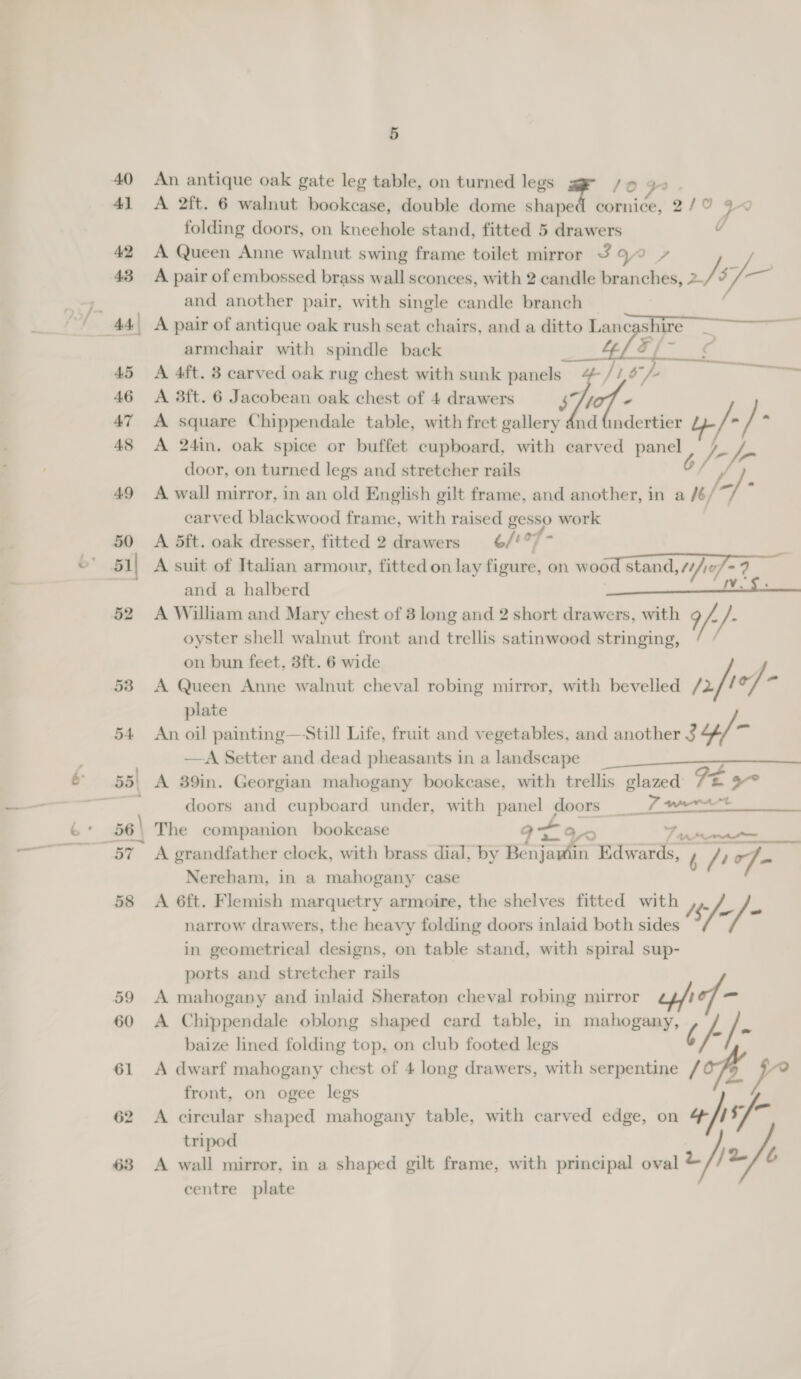 5
40 An antique oak gate leg table, on turned legs
41 A 2ft. 6 walnut bookcase, double dome shaped cornice,
folding doors, on kneehole stand, fitted 5 drawers
42 A Queen Anne walnut swing frame toilet mirror
43 A pair of embossed brass wall sconces, with 2 candle branches, 2/5/-
and another pair, with single candle branch
44 A pair of antique oak rush seat chairs, and a ditto Lancashire
armchair with spindle back
45 A 4ft. 3 carved oak rug chest with sunk panels 4/15/-
46 A 3ft. 6 Jacobean oak chest of 4 drawers 5/10/-
47 A square Chippendale table, with fret gallery and undertier 4/-/-
48 A 24in. oak spice or buffet cupboard, with carved panel
door, on turned legs and stretcher rails 6/-/-
49 A wall mirror, in an old English gilt frame, and another, in a 16/-/-
carved blackwood frame, with raised gesso work
50 A 5ft. oak dresser, fitted 2 drawers 6/10/-
51 A suit of Italian armour, fitted on lay figure, on wood stand,
and a halberd
52 A William and Mary chest of 3 long and 2 short drawers, with 9/-/-
oyster shell walnut front and trellis satinwood stringing,
on bun feet, 3ft. 6 wide
53 A Queen Anne walnut cheval robing mirror, with bevelled 12/10/-
plate
54 An oil painting—Still Life, fruit and vegetables, and another
—A Setter and dead pheasants in a landscape
55 A 39in. Georgian mahogany bookcase, with trellis glazed
doors and cupboard under, with panel doors
56 The companion bookcase
57 A grandfather clock, with brass dial, by Benjamin Edwards,
Nereham, in a mahogany case
58 A 6ft. Flemish marquetry armoire, the shelves fitted with 15/-/-
narrow drawers, the heavy folding doors inlaid both sides
in geometrical designs, on table stand, with spiral sup-
ports and stretcher rails
59 A mahogany and inlaid Sheraton cheval robing mirror 4/10/-
60 A Chippendale oblong shaped card table, in mahogany,
baize lined folding top, on club footed legs 6/-/-
61 A dwarf mahogany chest of 4 long drawers, with serpentine
front, on ogee legs
62 A circular shaped mahogany table, with carved edge, on 4/15/-
tripod
63 A wall mirror, in a shaped gilt frame, with principal oval 2/12/6
centre plate